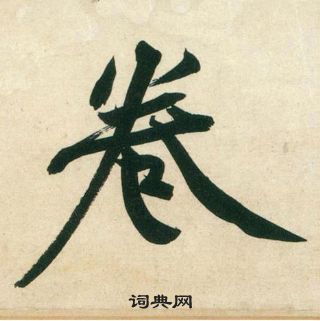 卷
词典网